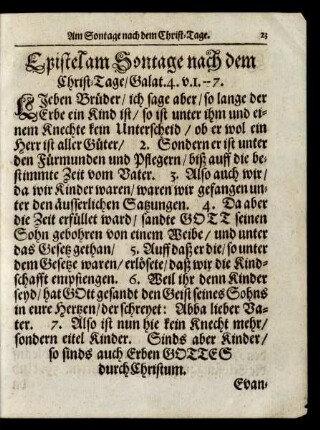 Am Sontage nach dem Christ-Tage. 23
Epistel am Sontage nach dem
Christ-Tage/ Galat. 4. v. 1. -- 7.
LJeben Brüder/ ich sage aber/ so lange der
Erbe ein Kind ist/ so ist unter ihm und ei-
nem Knechte kein Unterscheid / ob er wol ein
Herr ist aller Güter/ 2. Sondern er ist unter
den Fürmunden und Pflegern/ biß auff die be-
stimmte Zeit vom Vater. 3. Also auch wir/
da wir Kinder waren/ waren wir gefangen un-
ter den äusserlichen Satzungen. 4. Da aber
die Zeit erfüllet ward/ sandte GOTT seinen
Sohn gebohren von einem Weibe/ und unter
das Gesetz gethan/ 5. Auff daß er die/ so unter
dem Gesetze waren/ erlösete/ daß wir die Kind-
schafft empfiengen. 6. Weil ihr denn Kinder
seyd/ hat GOtt gesandt den Geist seines Sohns
in eure Hertzen/ der schreyet: Abba lieber Va-
ter. 7. Also ist nun hie kein Knecht mehr/
sondern eitel Kinder. Sinds aber Kinder/
so sinds auch Erben GOTTES
durch Christum.
Evan-